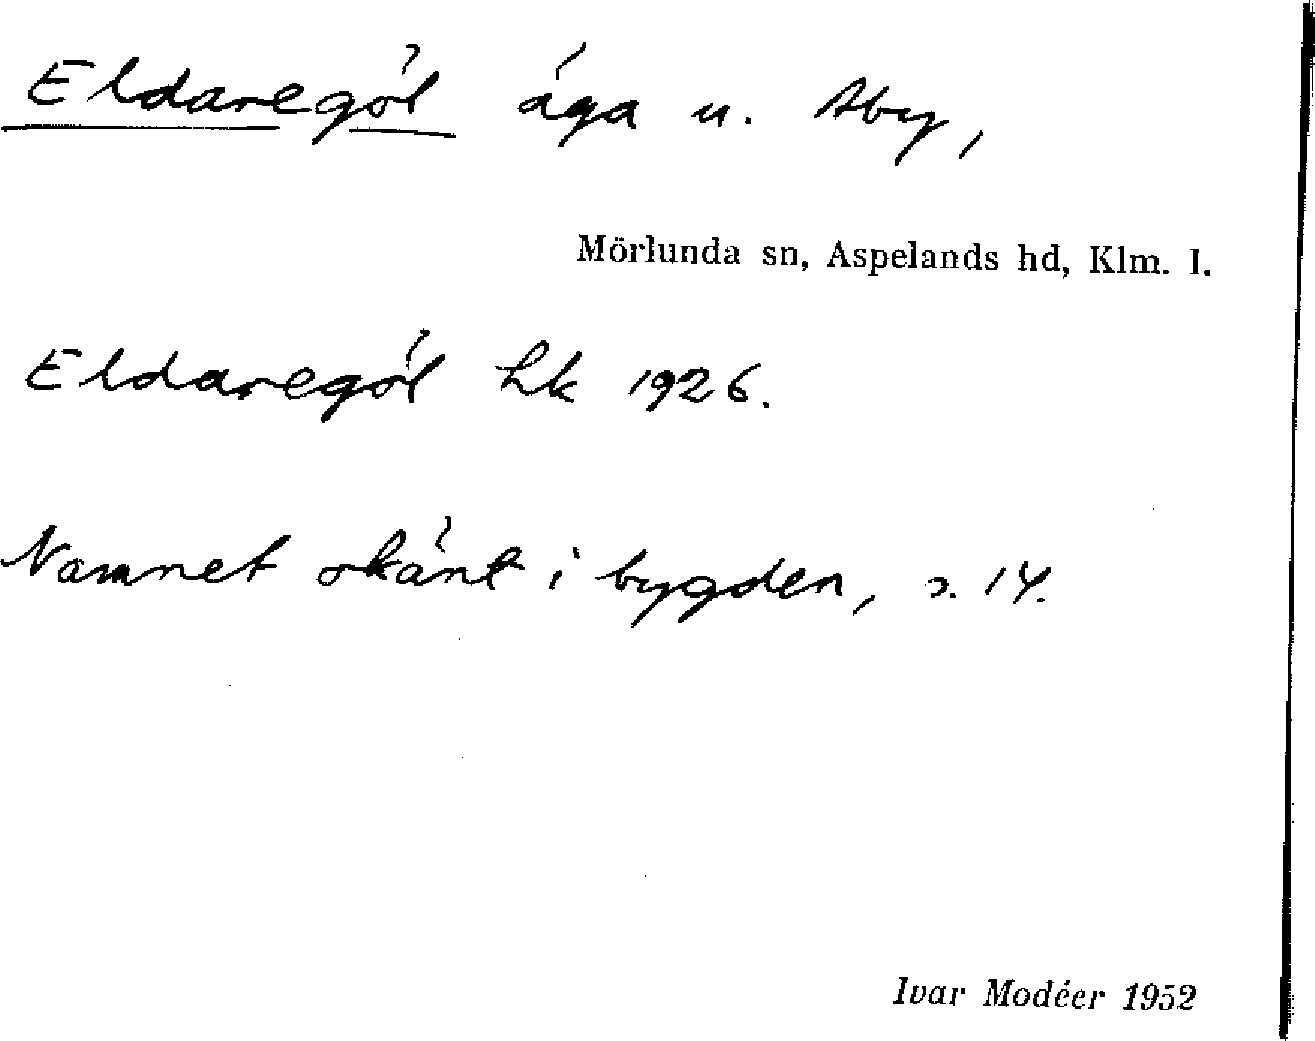 Eldaregöl äga u. Åby,
Mörlunda sn, Aspelands hd, Klm. l.
Eldaregöl hk 1926.
Namnet okänt i bygden, s. 14.
Ivar Modéer 1952